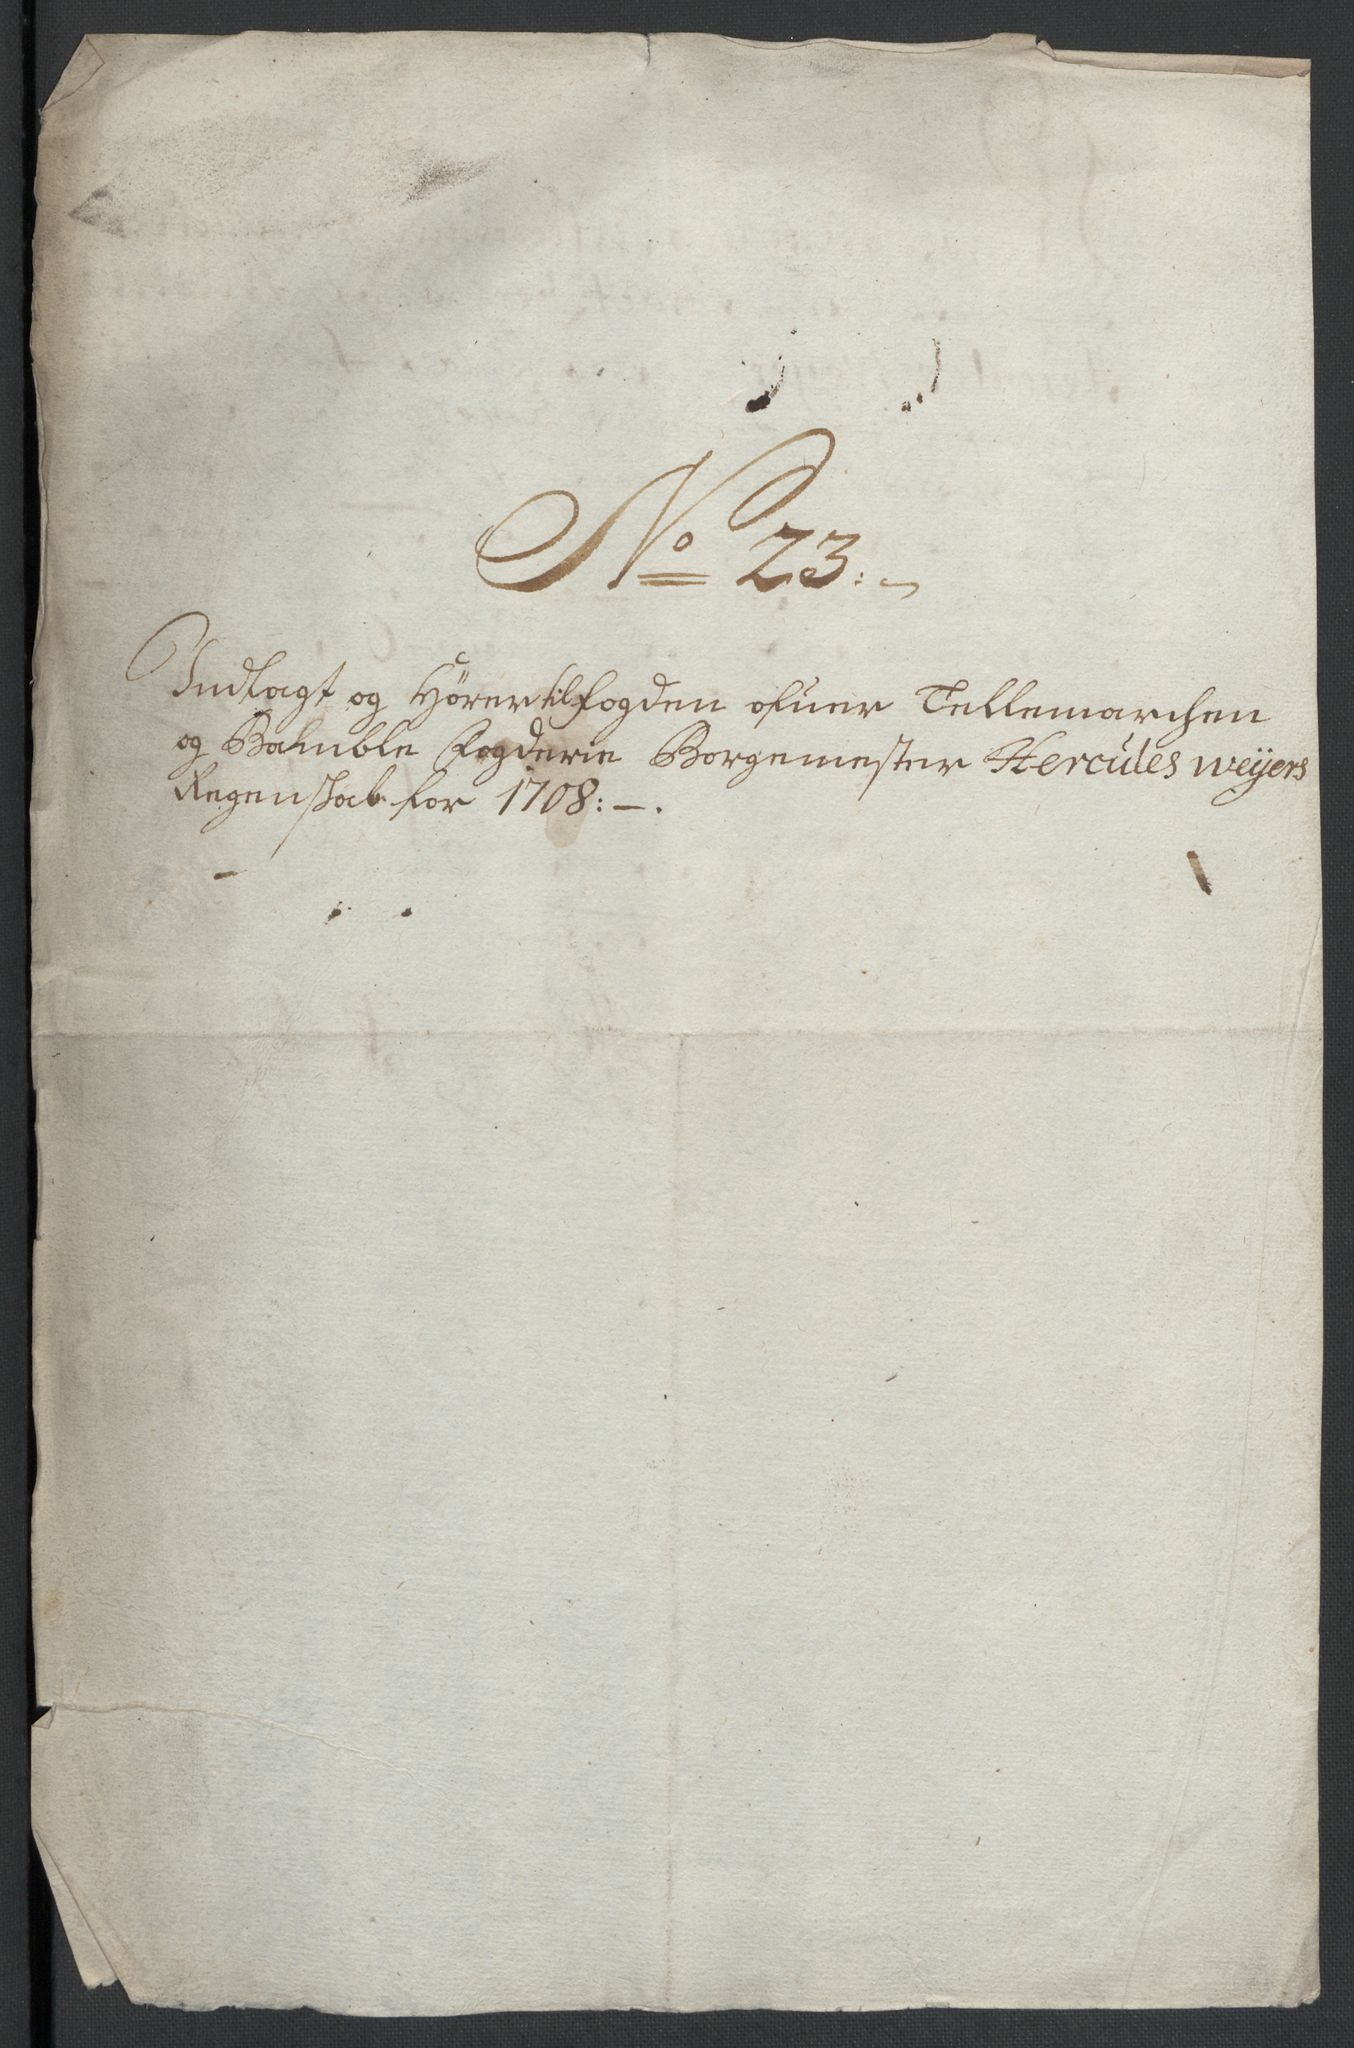 No 23:~
Indlagt og Hører til fogden ofuer Tellemarchen
og Bahmble Fogderie Borgemester Hercules weÿers
Regenskab for 1708:—.